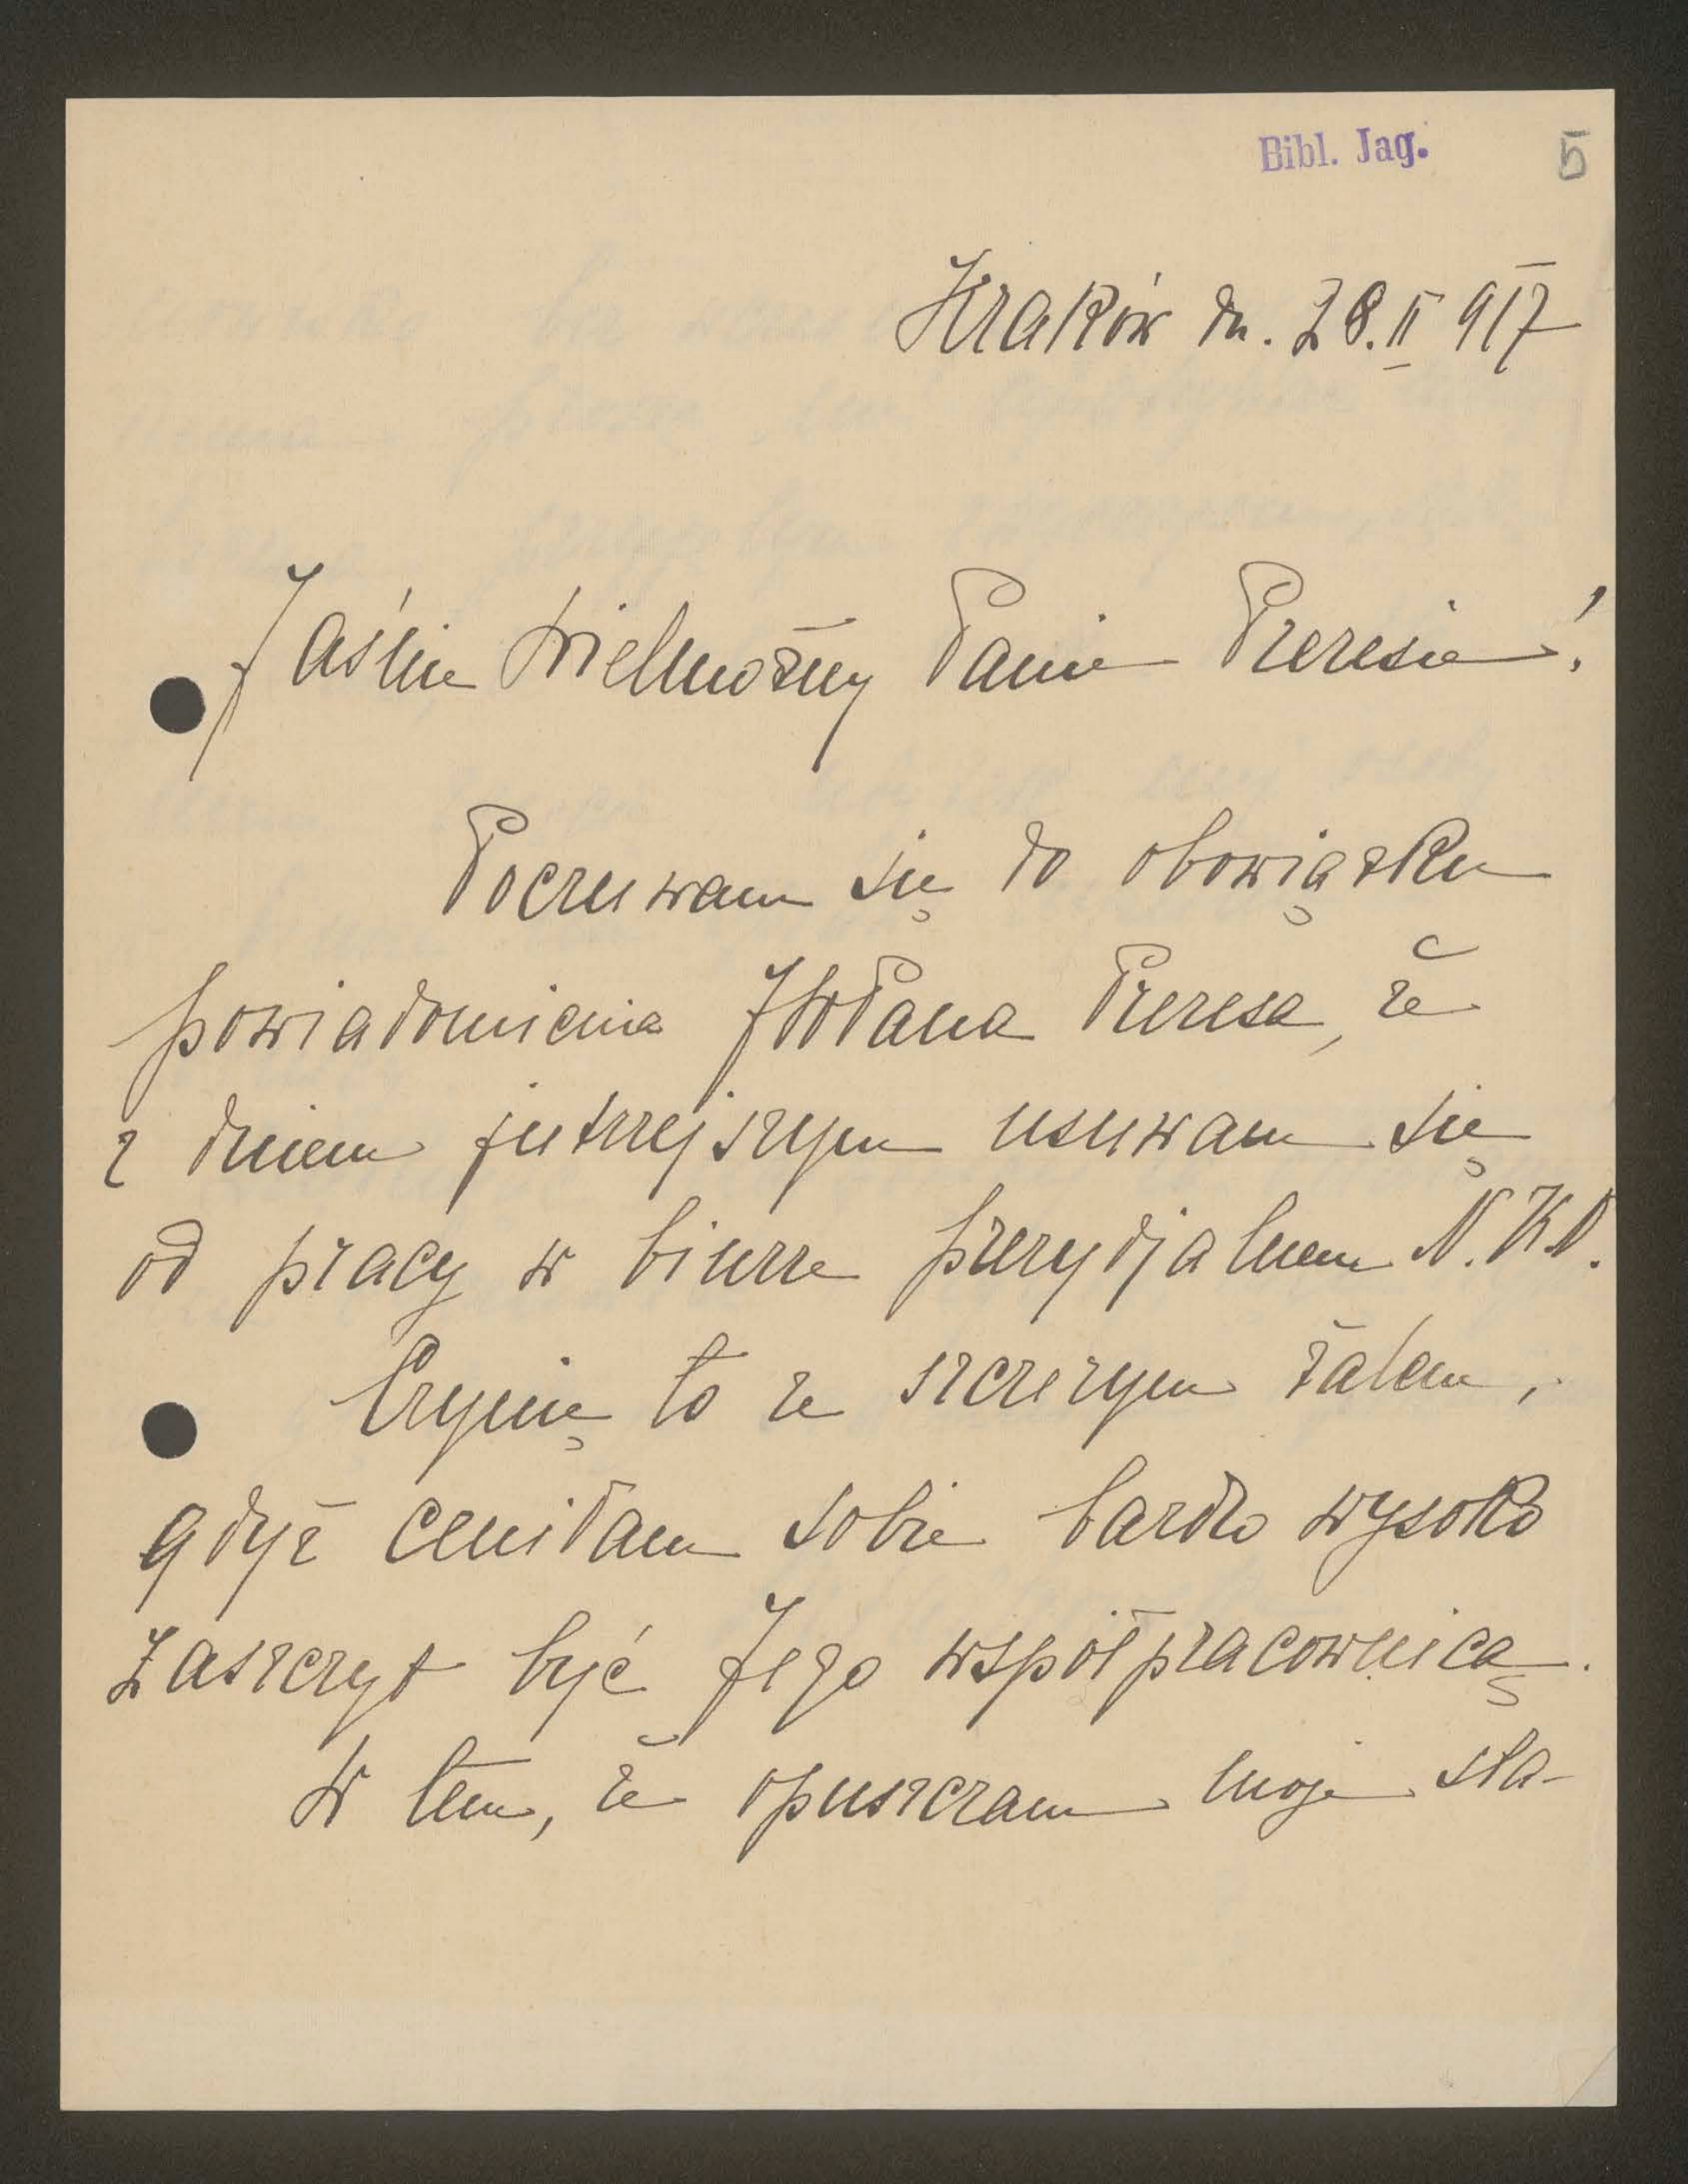 Bibl. Jag. 5
Kraków dn. 28.II 917
Jaśnie Wielmożny Panie Prezesie!
Poczuwam się do obowiązku
powiadomienia JWPana Prezesa, że
z dniem jutrzejszym usuwam się
od pracy w biurze prezydjalnem N.K.N.
Czynię to ze szczerym żalem,
gdyż ceniłam sobie bardzo wysoko
zaszczyt być Jego współpracownicą.
W tem, że opuszczam moje sta-